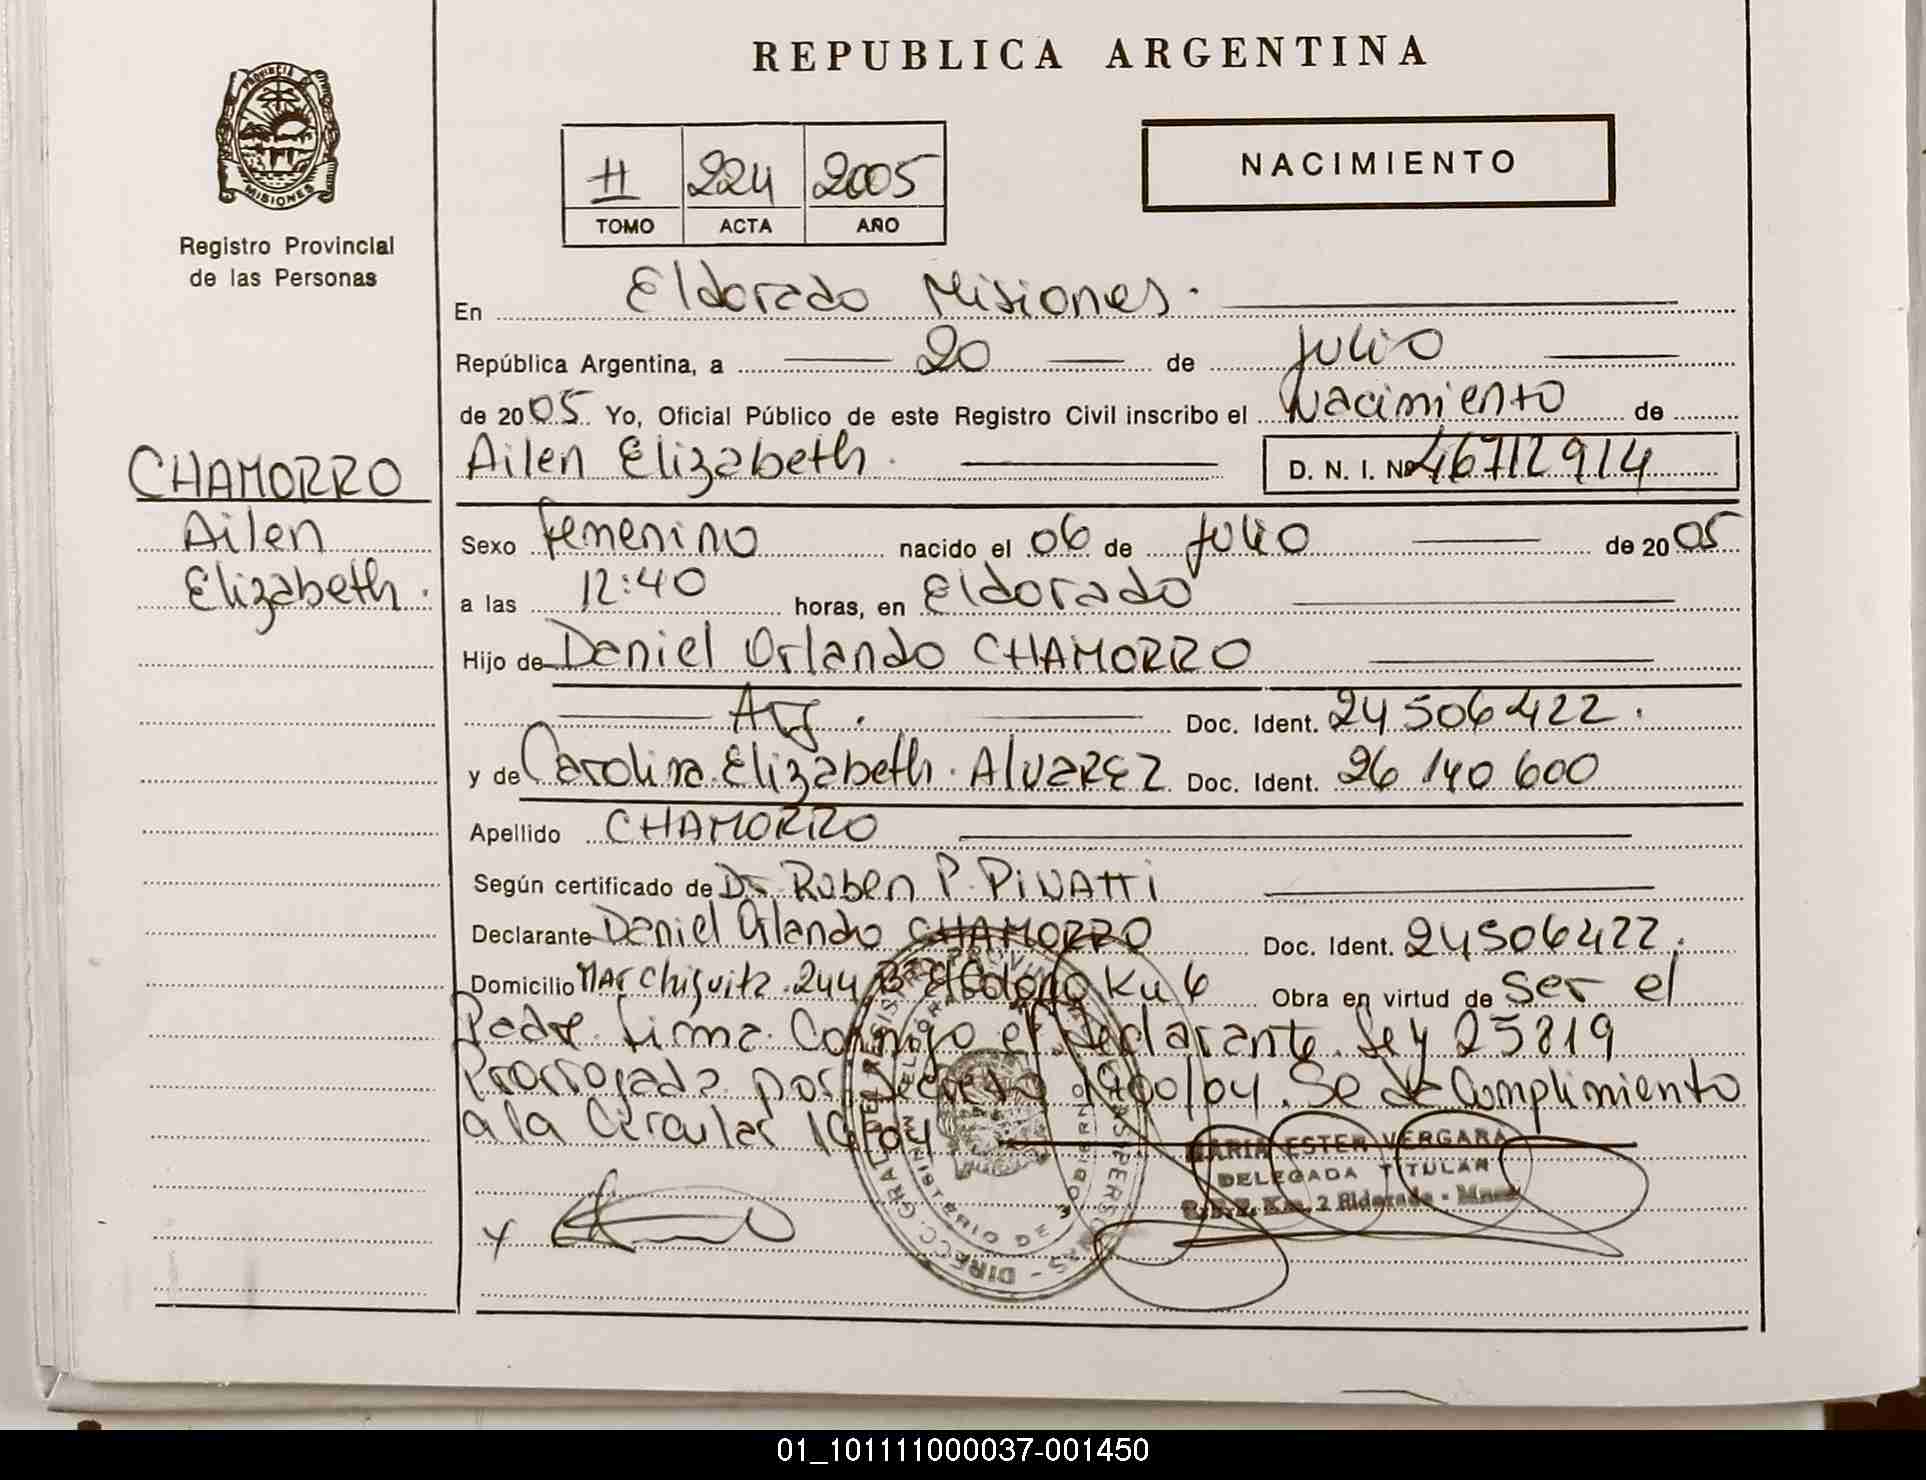 REPUBLICA ARGENTINA
PROVINCIA DE
MISIONES
Registro Provincial
de las Personas
NACIMIENTO
II 224 2005
TOMO ACTA AÑO
En Eldorado Misiones.
República Argentina, a 20 de Julio
de 2005 Yo, Oficial Público de este Registro Civil inscribo el Nacimiento de
CHAMORRO
Ailen
Elizabeth.
Ailen Elizabeth. D. N. I. Nº 46712914
Sexo femenino nacido el 06 de Julio de 2005
a las 12:40 horas, en Eldorado
Hijo de Daniel Orlando CHAMORRO
Arg. Doc. Ident. 24506422.
y de Carolina Elizabeth. AlvaREZ Doc. Ident. 26 140 600
Apellido CHAMORRO
Según certificado de Dr Ruben P. PiVATTi
Declarante Daniel Orlando CHAMORRO Doc. Ident. 24506422.
Domicilio MAR Chiquita 244 Bº El Colono Km 6 Obra en virtud de Ser el
Padre. firma Conmigo el declarante. Ley 25819
Prorrogada por Decreto 1900/04. Se da Cumplimiento
a la Circular 19/04
MARIA ESTER VERGARA
DELEGADA TITULAR
Km. 2 Eldorado - Mnes
Y
01_101111000037-001450